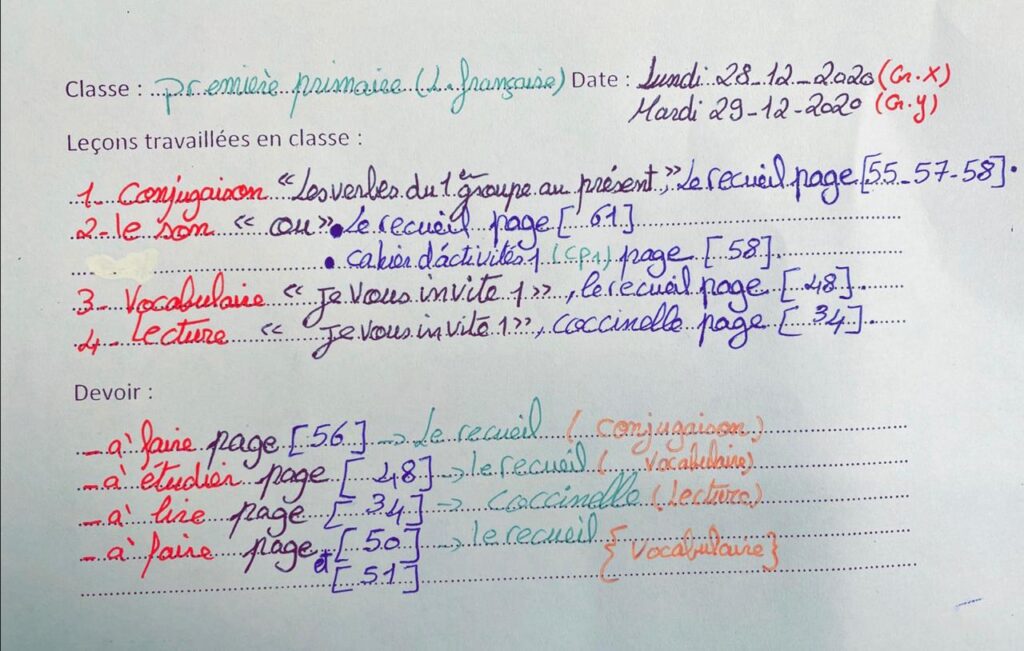 Classe : première primaire (L. française) Date : Lundi 28-12-2020 (Gr.X)
Mardi 29-12-2020 (Gr.y)
Leçons travaillées en classe :
1. Conjugaison "Les verbes du 1er groupe au présent", Le recueil page [55-57-58].
2- le son « ou » • Le recueil page [61]
• cahier d'activités 1 (CP1) page [58].
3- Vocabulaire « je vous invite 1 », le recueil page [48].
4- Lecture « je vous invite 1 », coccinelle page [34].
Devoir :
- à faire page [56] → Le recueil (Conjugaison)
- à étudier page [48] → le recueil (Vocabulaire)
- à lire page [34] → coccinelle (Lecture)
- à faire page [50] → le recueil {Vocabulaire}
et [51]